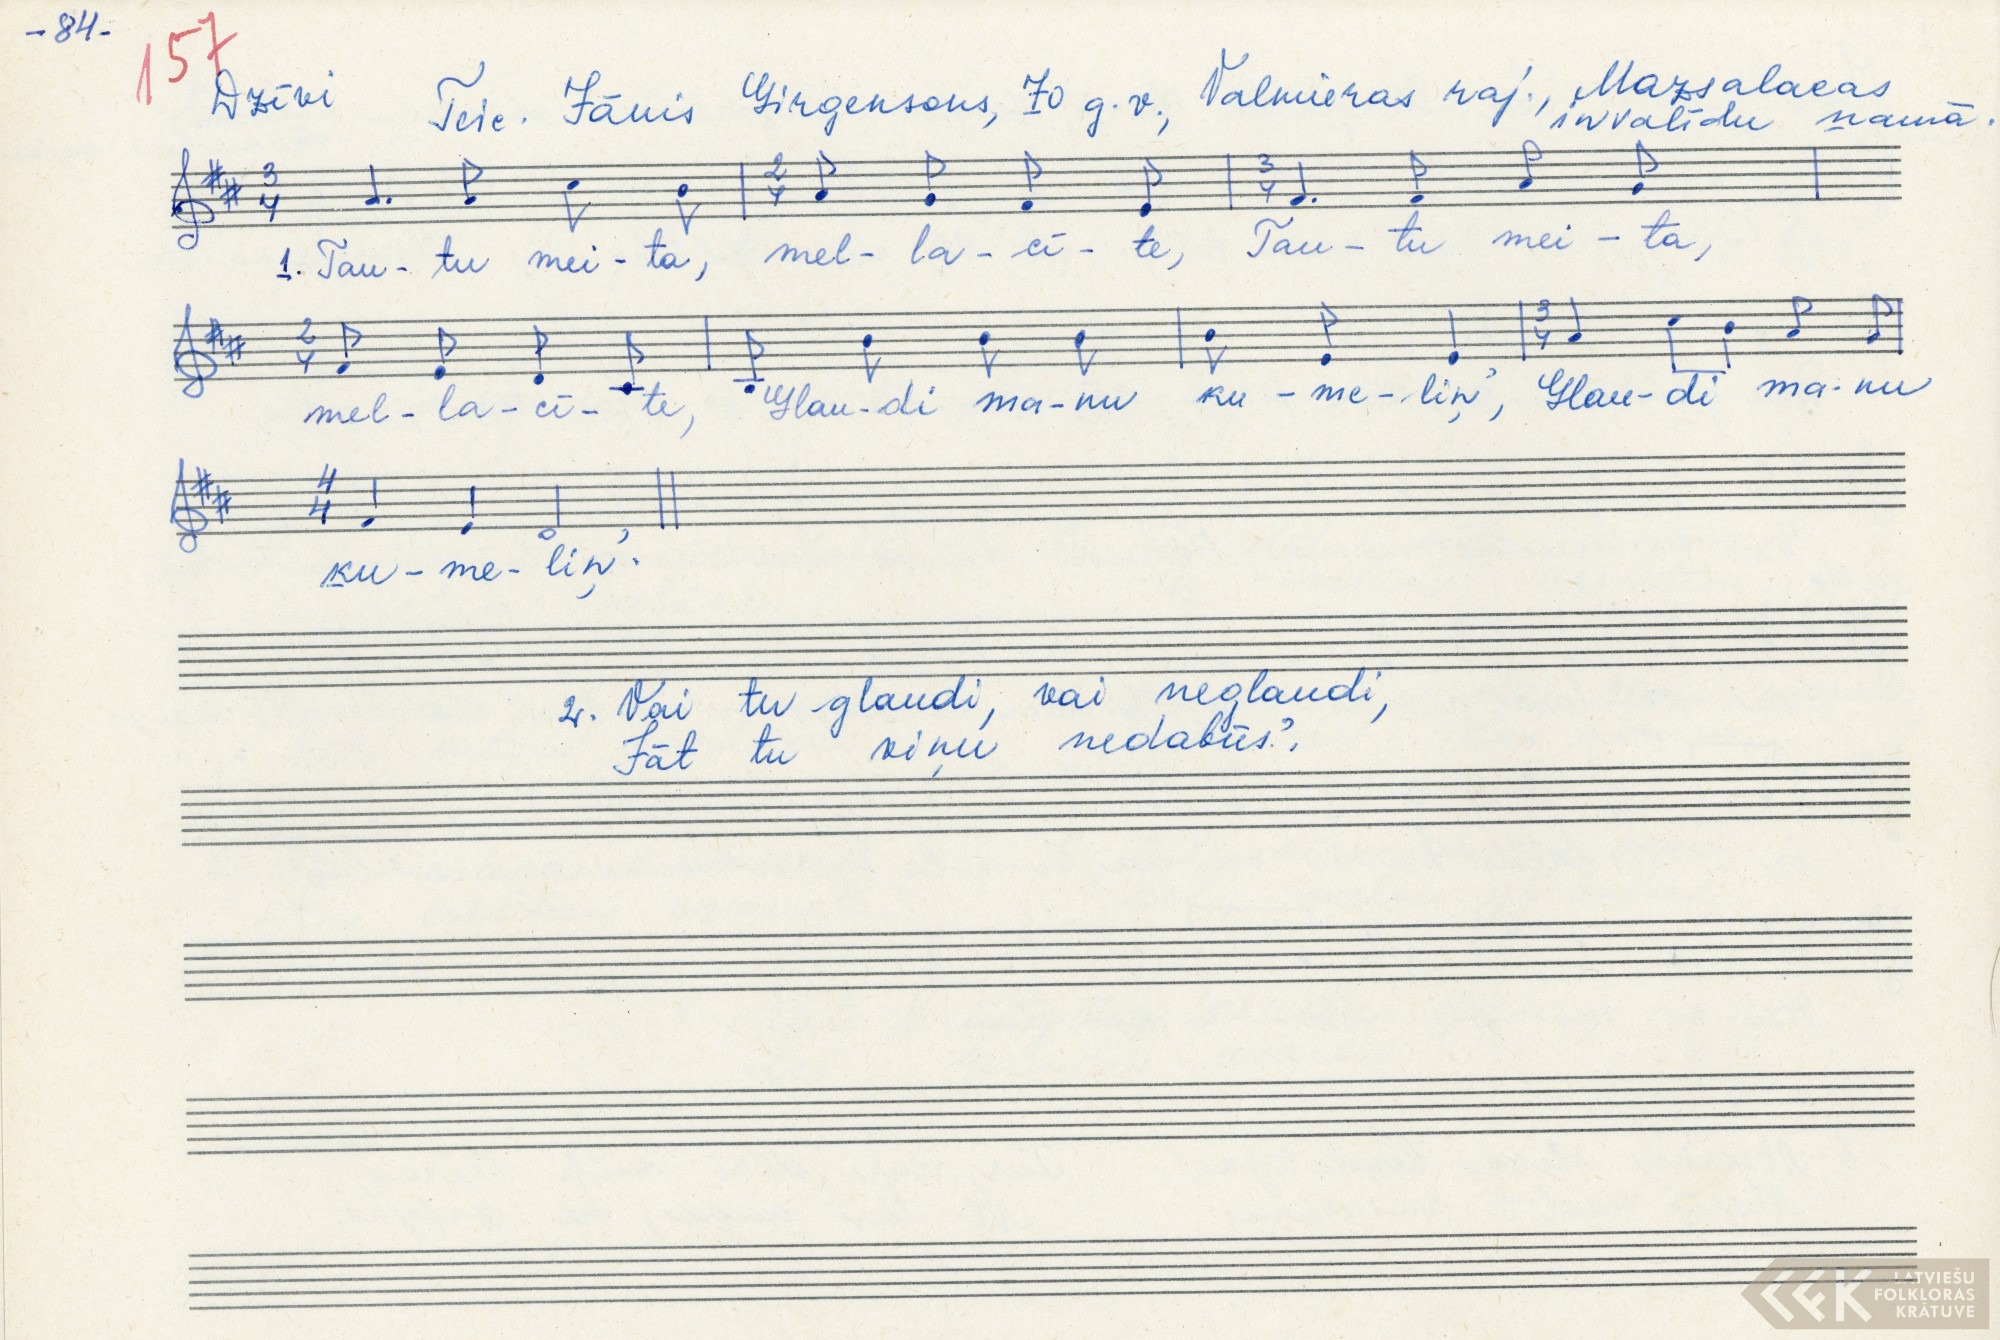 -84-
157
Dzīvi Teic. Jānis Girgensons, 70 g.v., Valmieras raj., Mazsalacas
invalīdu namā.
3 4 2 4 3 4
1. Tau- tu mei- ta, mel- la- cī- te, Tau- tu mei- ta,
2 4 3 4
mel- la- cī- te, Glau- di ma- nu ku- me- liņ', Glau- di ma- nu
4 4
ku- me- liņ'.
2. Vai tu glaudi, vai neglaudi,
Jāt tu viņu nedabūs'.
LATVIEŠU
FOLKLORAS
KRĀTUVE